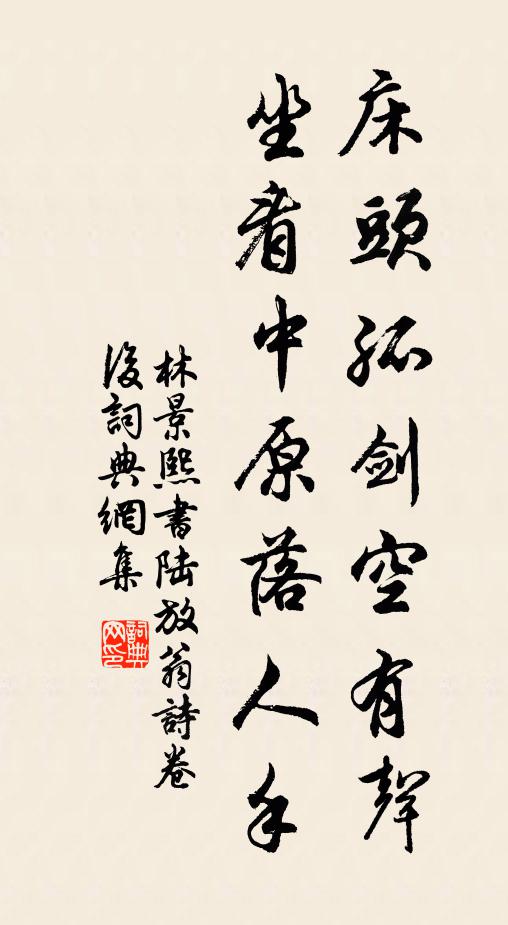 床頭孤剑空有聲
坐看中原落人手
林景熙書陆放翁詩卷
後詞典網集
詞典网印